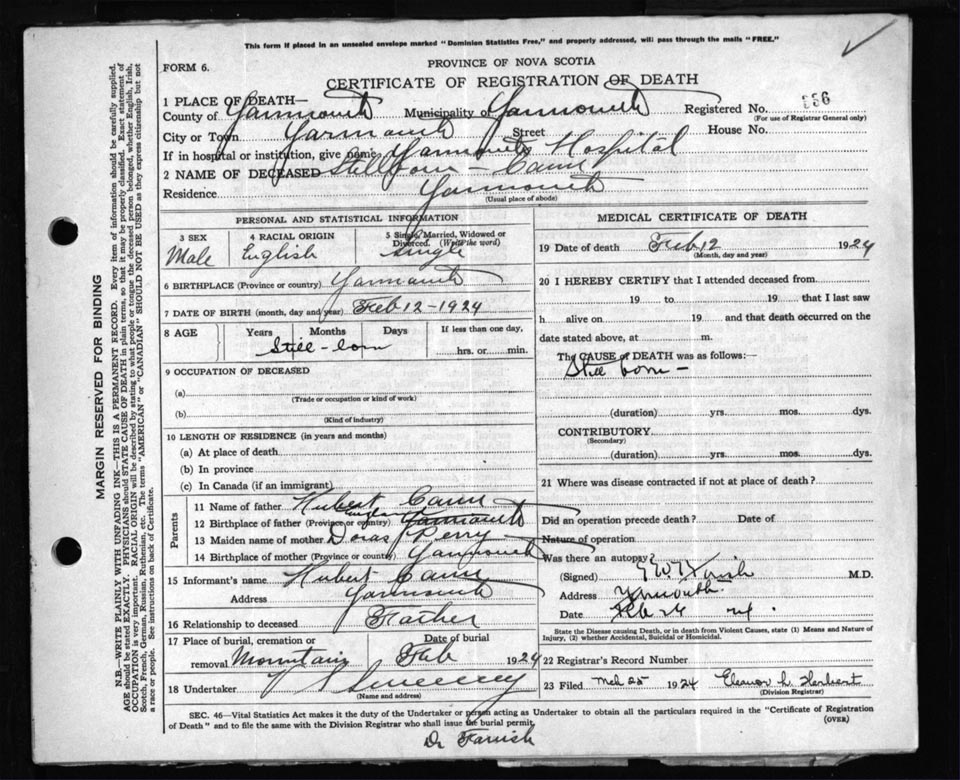 This form if placed in an unsealed envelope marked "Dominion Statistics Free," and properly addressed, will pass through the mails "FREE."
FORM 6.
PROVINCE OF NOVA SCOTIA
CERTIFICATE OF REGISTRATION OF DEATH
1 PLACE OF DEATH—
County of Yarmouth Municipality of Yarmouth Registered No. 356
(For use of Registrar General only)
City or Town Yarmouth Street House No.
If in hospital or institution, give name Yarmouth Hospital
2 NAME OF DECEASED Stillborn - Cann
Residence Yarmouth
(Usual place of abode)
PERSONAL AND STATISTICAL INFORMATION
3 SEX 4 RACIAL ORIGIN 5 Single, Married, Widowed or Divorced. (Write the word)
Male English Single
6 BIRTHPLACE (Province or country) Yarmouth
7 DATE OF BIRTH (month, day and year) Feb 12-1924
8 AGE Years Months Days If less than one day,
Still-born hrs. or min.
9 OCCUPATION OF DECEASED
(a)
(Trade or occupation or kind of work)
(b)
(Kind of industry)
10 LENGTH OF RESIDENCE (in years and months)
(a) At place of death
(b) In province
(c) In Canada (if an immigrant)
Parents
11 Name of father Hubert Cann
12 Birthplace of father (Province or country) England Yarmouth
13 Maiden name of mother Doras Perry
14 Birthplace of mother (Province or county) Yarmouth
15 Informant's name Hubert Cann
Address Yarmouth
16 Relationship to deceased Father
17 Place of burial, cremation or removal Mountain Date of burial Feb 1924
18 Undertaker V S Sweeney
(Name and address)
MEDICAL CERTIFICATE OF DEATH
19 Date of death Feb 12 1924
(Month, day and year)
20 I HEREBY CERTIFY that I attended deceased from
19 to 19 that I last saw
h alive on 19 and that death occurred on the
date stated above, at m.
The CAUSE of DEATH was as follows:—
Still born -
(duration) yrs. mos. dys.
CONTRIBUTORY
(Secondary)
(duration) yrs. mos. dys.
21 Where was disease contracted if not at place of death?
Did an operation precede death? Date of
Nature of operation
Was there an autopsy?
(Signed) Farish M.D.
Address Yarmouth
Date Feb
State the Disease causing Death, or in death from Violent Causes, state (1) Means and Nature of
Injury, (2) whether Accidental, Suicidal or Homicidal.
22 Registrar's Record Number
23 Filed Mch 25 1924 Eleanor L Herbert
(Division Registrar)
SEC. 46—Vital Statistics Act makes it the duty of the Undertaker or person acting as Undertaker to obtain all the particulars required in the "Certificate of Registration
of Death" and to file the same with the Division Registrar who shall issue the burial permit.
(OVER)
Dr Farish
MARGIN RESERVED FOR BINDING
N.B.—WRITE PLAINLY WITH UNFADING INK—THIS IS A PERMANENT RECORD. Every item of information should be carefully supplied.
AGE should be stated EXACTLY. PHYSICIANS should STATE CAUSE OF DEATH in plain terms, so that it may be properly classified. Exact statement of
OCCUPATION is very important. RACIAL ORIGIN will be described by stating to what people or tongue the deceased person belonged, whether English, Irish,
Scotch, French, German, Russian, Ruthenian, etc. The terms "AMERICAN" or "CANADIAN" SHOULD NOT BE USED as they express citizenship but not
a race or people. See instructions on back of Certificate.